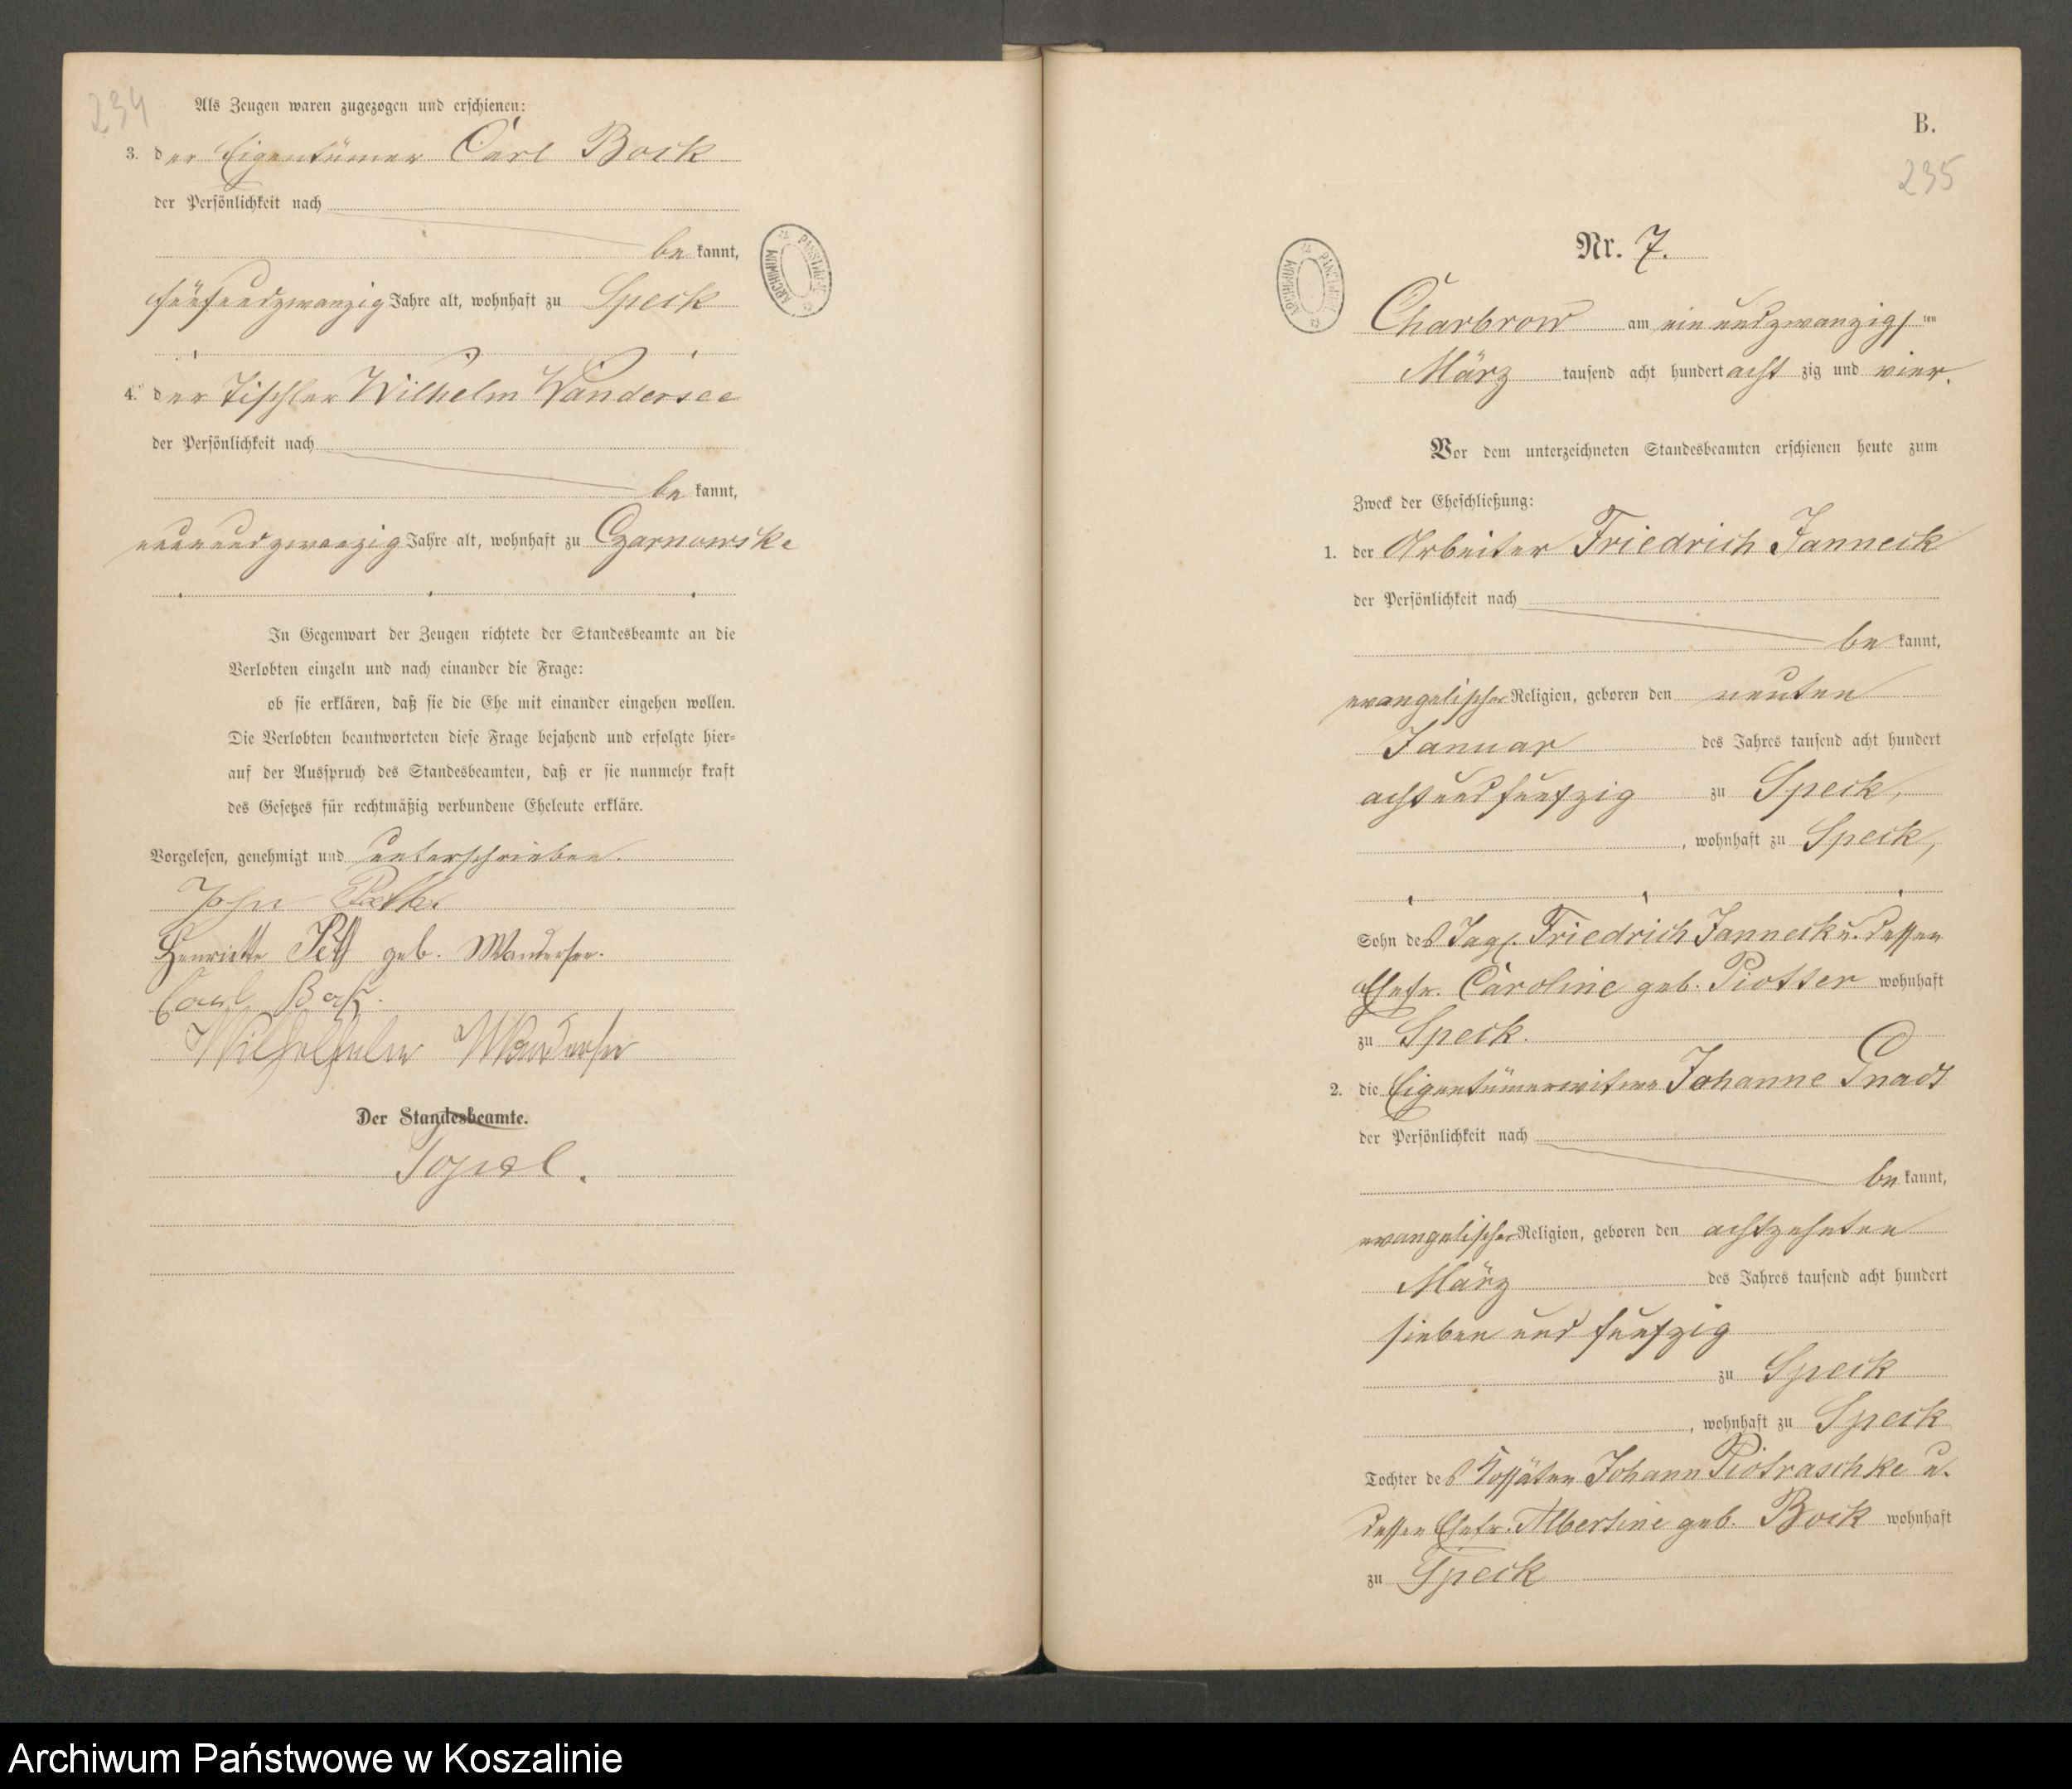 234
Als Zeugen waren zugezogen und erschienen:
3. der Eigentümer Carl Bock
der Persönlichkeit nach
bekannt,
fünfundzwanzig Jahre alt, wohnhaft zu Speck
4. der Tischler Wilhelm Wandersee
der Persönlichkeit nach
bekannt,
neunundzwanzig Jahre alt, wohnhaft zu Czarnowske
In Gegenwart der Zeugen richtete der Standesbeamte an die
Verlobten einzeln und nach einander die Frage:
ob sie erklären, daß sie die Ehe mit einander eingehen wollen.
Die Verlobten beantworteten diese Frage bejahend und erfolgte hier-
auf der Ausspruch des Standesbeamten, daß er sie nunmehr kraft
des Gesetzes für rechtmäßig verbundene Eheleute erkläre.
Vorgelesen, genehmigt und unterschrieben.
John
Henriette geb. Wandersee.
Carl Bock.
Wilhelm Wandersee
Der Standesbeamte.
B.
235
ARCHIWUM PAŃSTWOWE
ARCHIWUM PAŃSTWOWE
Nr. 7.
Charbrow am einundzwanzigsten
März tausend acht hundert achtzig und vier.
Vor dem unterzeichneten Standesbeamten erschienen heute zum
Zweck der Eheschließung:
1. der Arbeiter Friedrich Janneck
der Persönlichkeit nach
bekannt,
evangelischer Religion, geboren den neunten
Januar des Jahres tausend acht hundert
achtundfunfzig zu Speck,
, wohnhaft zu Speck,
Sohn des Tagl. Friedrich Janneck u. dessen
Ehefr. Caroline geb. Piotter wohnhaft
zu Speck.
2. die Eigentümerwitwe Johanne Gnadt
der Persönlichkeit nach
bekannt,
evangelischer Religion, geboren den achtzehnten
März des Jahres tausend acht hundert
sieben und funfzig
zu Speck
, wohnhaft zu Speck
Tochter des Kossäten Johann Piotraschke u.
dessen Ehefr. Albertine geb. Bock wohnhaft
zu Speck
Archiwum Państwowe w Koszalinie